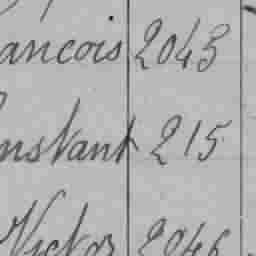 ancois 2043
nstant 215
Victor 2046